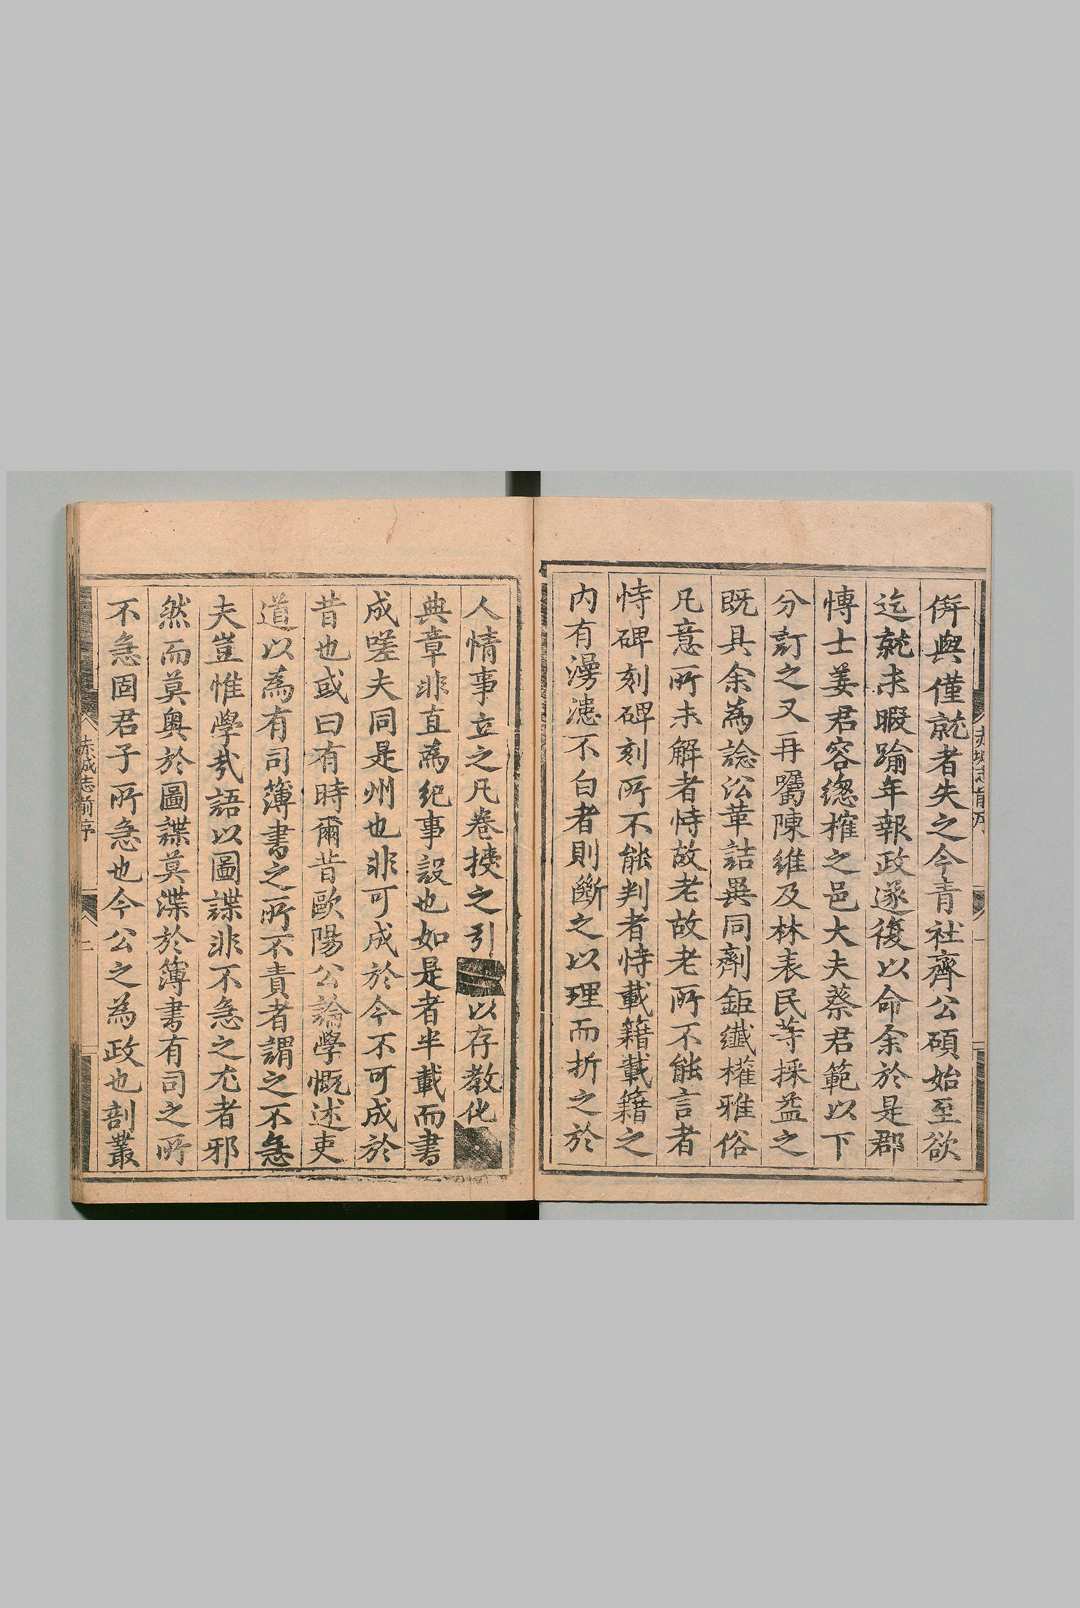 併與僅就者失之今青社齊公碩始至欲
迄就未暇踰年報政遂復以命余於是郡
博士姜君容緫榷之邑大夫蔡君範以下
分訂之又再囑陳維及林表民等採益之
既具余為諗㳂革詰異同劑鉅纖權雅俗
凡意所未解者恃故老故老所不能言者
恃碑刻碑刻所不能判者恃載籍載籍之
内有漫漶不白者則斷之以理而折之於
人情事立之凡卷揳之引以存教化
典章非直為紀事設也如是者半載而書
成嗟夫同是州也非可成於今不可成於
昔也或曰有時爾昔歐陽公論學慨述吏
道以為有司簿書之所不責者謂之不急
夫豈惟學㢤語以圖諜非不急之尤者邪
然而莫奥於圖諜莫渫於簿書有司之所
不急固君子所急也今公之為政也剖叢
赤城志前序
二